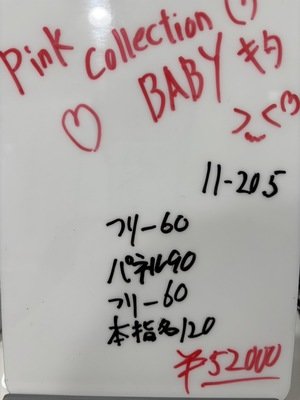 Pink Collection
BABY
11-205
フリー60
パネル90
フリー60
本指名120
¥52000